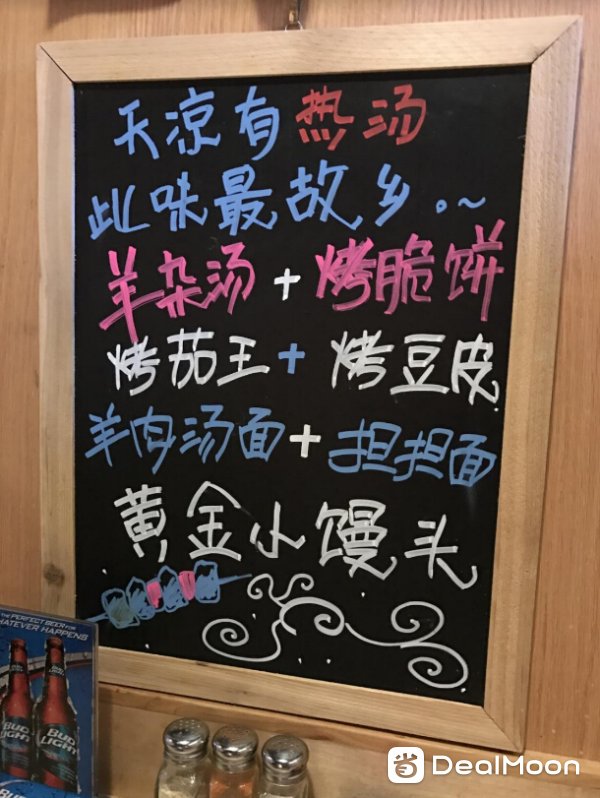 天凉有热汤
此味最故乡。~
羊杂汤+烤脆饼
烤茄王+烤豆皮
羊肉汤面+担担面
黄金小馒头
THE PERFECT BEER FOR
WHATEVER HAPPENS
BUD LIGHT
BUD LIGHT
DealMoon